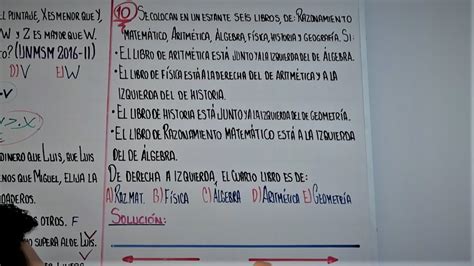 L PUNTAJE, X ES MENOR QUE Y,
W Y Z ES MAYOR QUE W.
TO? (UNMSM 2016-II)
D)V E)W
DINERO QUE LUIS, QUE LUIS
ENOS QUE MIGUEL, ELIJA LA
DADEROS.
S OTROS. F
NI SUPERA AL DE LUIS.
10 SE COLOCAN EN UN ESTANTE SEIS LIBROS, DE: RAZONAMIENTO
MATEMÁTICO, ARITMÉTICA, ÁLGEBRA, FÍSICA, HISTORIA Y GEOGRAFÍA. SI:
• EL LIBRO DE ARITMÉTICA ESTÁ JUNTO Y A LA IZQUIERDA DEL DE ÁLGEBRA.
• EL LIBRO DE FÍSICA ESTÁ A LA DERECHA DEL DE ARITMÉTICA Y A LA
IZQUIERDA DEL DE HISTORIA.
• EL LIBRO DE HISTORIA ESTÁ JUNTO Y A LA IZQUIERDA DEL DE GEOMETRÍA.
• EL LIBRO DE RAZONAMIENTO MATEMÁTICO ESTÁ A LA IZQUIERDA
DEL DE ÁLGEBRA.
DE DERECHA A IZQUIERDA, EL CUARTO LIBRO ES DE:
A) RAZ. MAT. B) FÍSICA C) ÁLGEBRA D) ARITMÉTICA E) GEOMETRÍA
SOLUCIÓN: